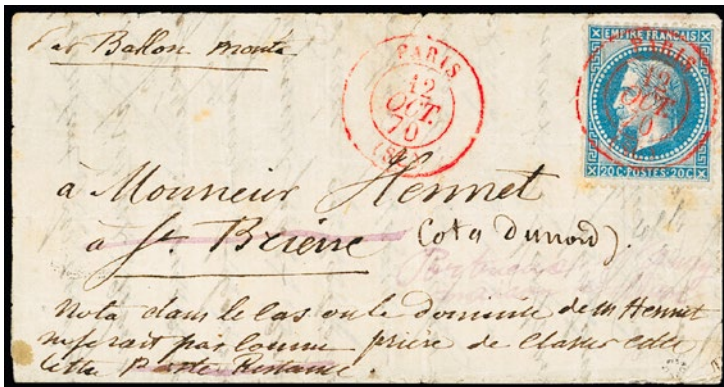 Par Ballon monté
PARIS
12
OCT.
70
(SC)
EMPIRE FRANÇAIS
PARIS
12
OCT.
70
20 C·POSTES·20 C
à Monsieur Hennet
à St. Brieuc (Cotes du nord).
Nota dans le cas ou le domicile de M Hennet
ne serait pas connu prière de classer cette
lettre Poste Restante.